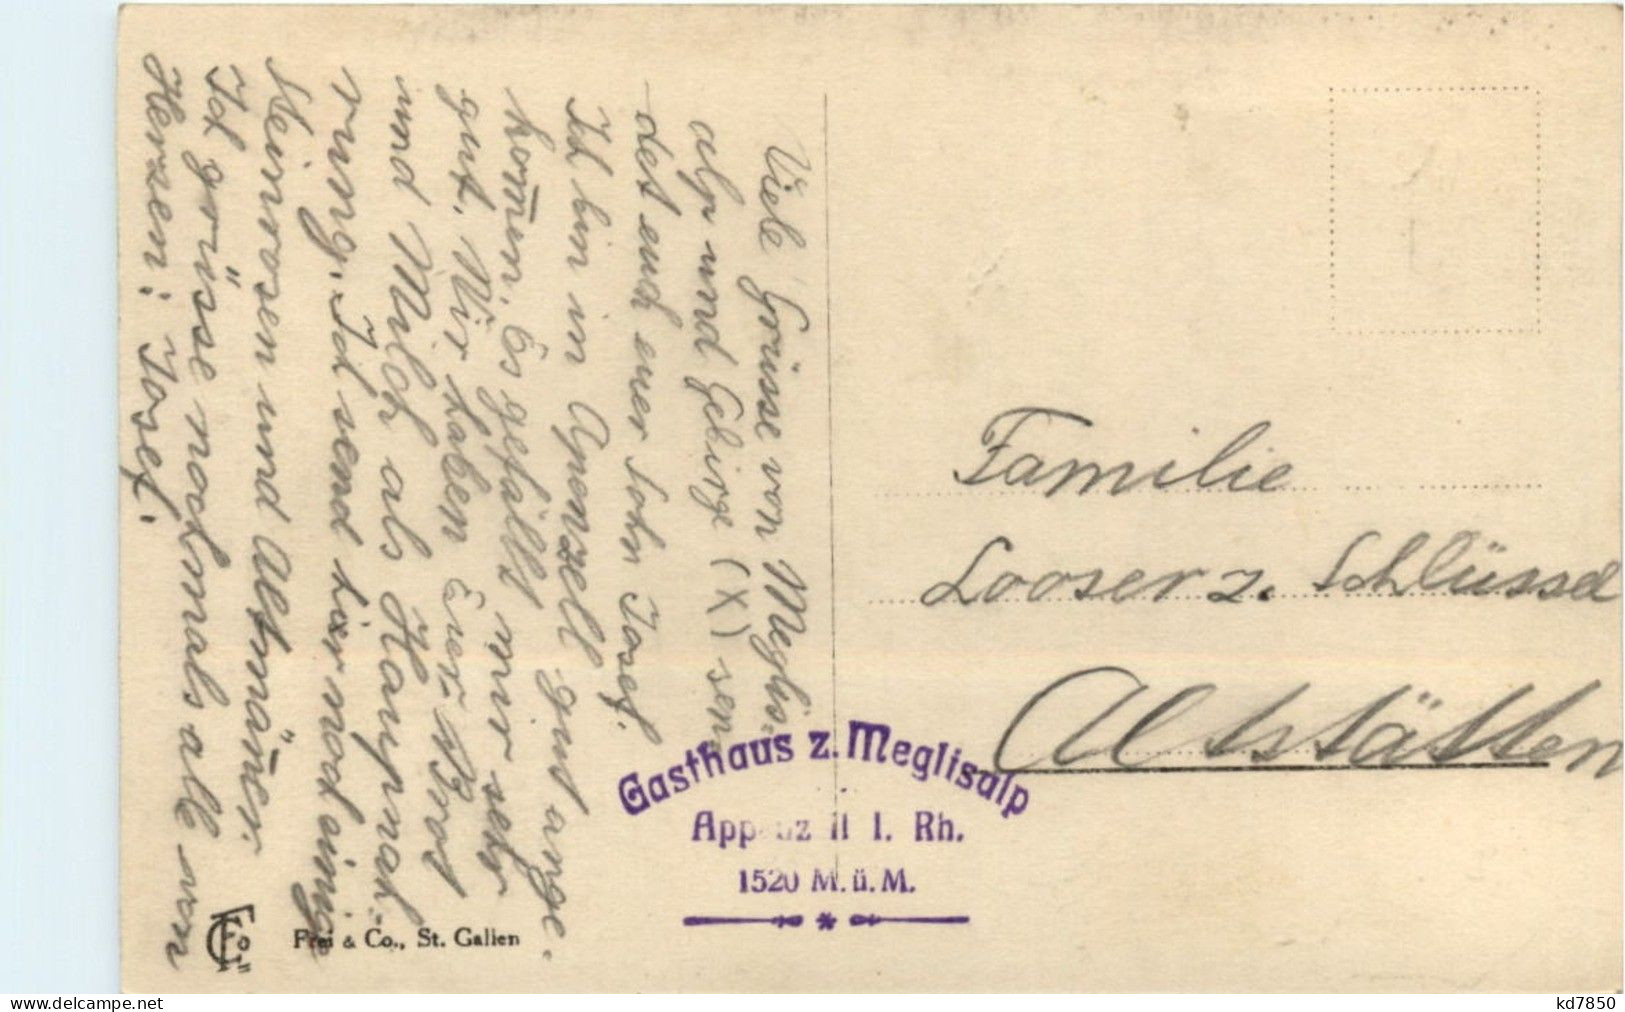 Viele Grüsse von Meglis-
alp und Gebirge (X) sen-
det euch euer Sohn Josef.
Ich bin in Apenzell gut ange-
kom̄en. Es gefällt mir sehr
gut. Wir haben Euer Brot
und Milch als Haupnah-
rung. Ich send hier noch einige
Steinrosen und Altmäner.
Ich grüsse nochmals alle von
Herzen: Josef.
Familie
Looser z. Schlüssel
Altstätten
Gasthaus z. Meglisalp
Appenzell I. Rh.
1520 M. ü. M.
Frei & Co., St. Gallen
www.delcampe.net
kd7850